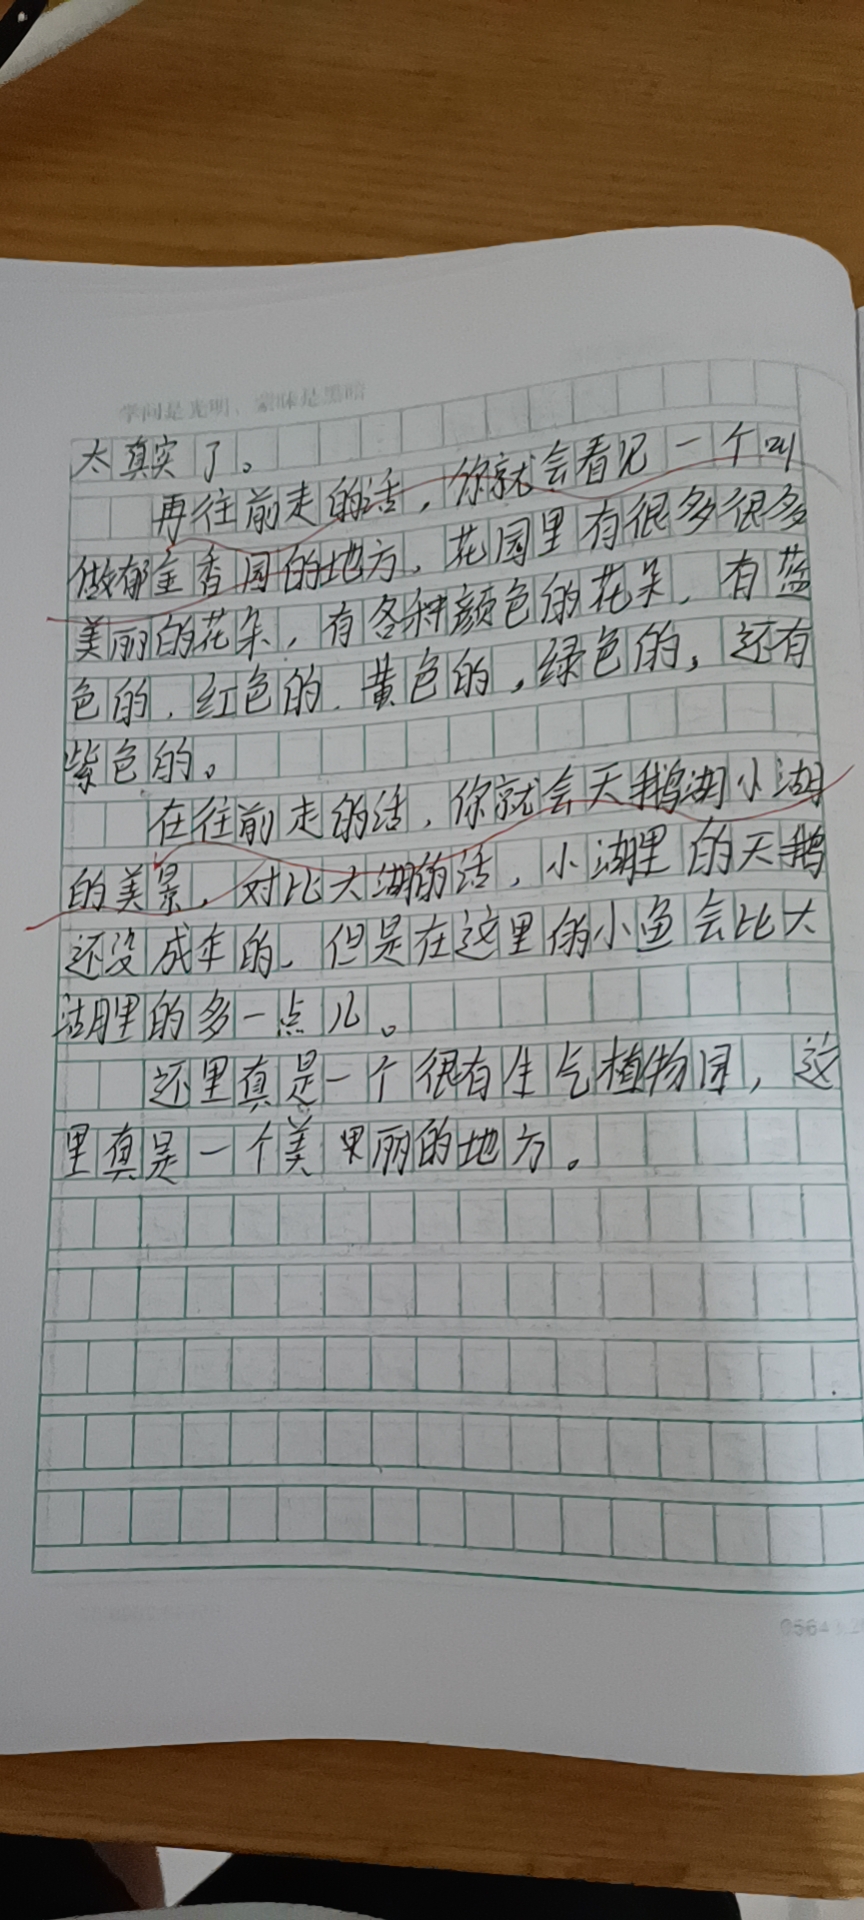 学问是光明、蒙昧是黑暗
太真实了。
再往前走的话，你就会看见一个叫
做郁金香园的地方，花园里有很多很多
美丽的花朵，有各种颜色的花朵，有蓝
色的，红色的，黄色的，绿色的，还有
紫色的。
在往前走的话，你就会天鹅湖小湖
的美景，对比大湖的话，小湖里的天鹅
还没成年的，但是在这里的小鱼会比大
湖里的多一点儿。
还里真是一个很有生气植物园，这
里真是一个美丽的地方。